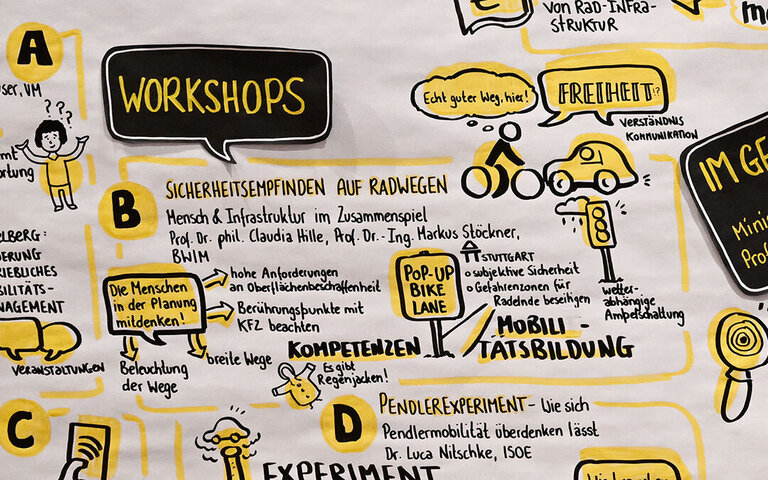 VON RAD-INFRA-
STRUKTUR
A
WORKSHOPS
Echt guter Weg, hier!
FREIHEIT!?
VERSTÄNDNIS
KOMMUNIKATION
IM
? ? ?
B
SICHERHEITSEMPFINDEN AUF RADWEGEN
Mensch & Infrastruktur im Zusammenspiel
Prof. Dr. phil. Claudia Hille, Prof. Dr.-Ing. Markus Stöckner,
BWIM
Die Menschen
in der Planung
mitdenken!
hohe Anforderungen
an Oberflächenbeschaffenheit
Berührungspunkte mit
KFZ beachten
breite Wege
Beleuchtung
der Wege
POP-UP
BIKE
LANE
STUTTGART
subjektive Sicherheit
Gefahrenzonen für
Radelnde beseitigen
wetter-
abhängige
Ampelschaltung
KOMPETENZEN
MOBILI-
TÄTSBILDUNG
Es gibt
Regenjacken!
VERANSTALTUNGEN
C
D
PENDLEREXPERIMENT - Wie sich
Pendlermobilität überdenken lässt
Dr. Luca Nitschke, ISOE
EXPERIMENT